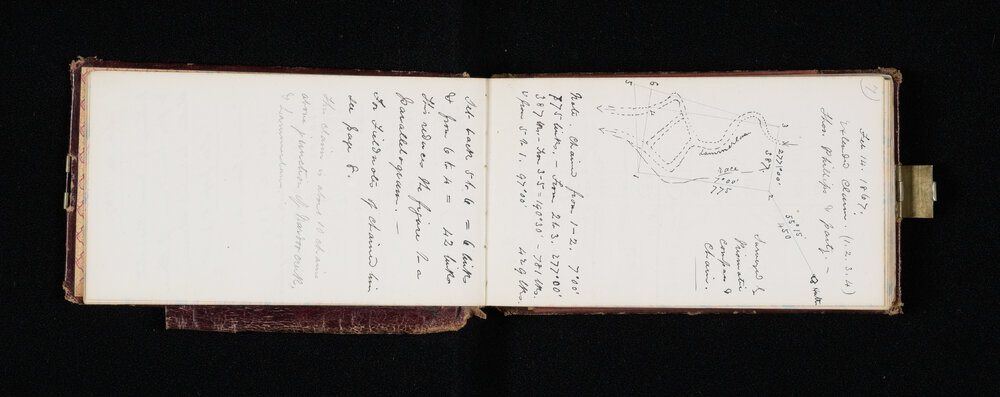 (7)
Feb 14. 1867.
Extended Claim. (1. 2. 3. 4)
Thos Phillips & party. —
6
5
4
3
2
1
277°00'
387.
Race
7°00'
775
55°15
450
Surveyed by
Prismatic
compass &
Chain.
Note Chained from 1-2. 7°00'
775 links. — From 2 to 3. 277°00'
387 lks — From 3-5 = 190°30' - 781 lks.
& from 5 to 1. 97°00' 429 lks.
Set back 5 to 6 = 6 links
& from 6 to 4 = 42 links
This reduces the figure to a
Parallelogram. —
For Fieldnotes of Chained line
see page 8.
This claim is about 10 chains
above junction of
&